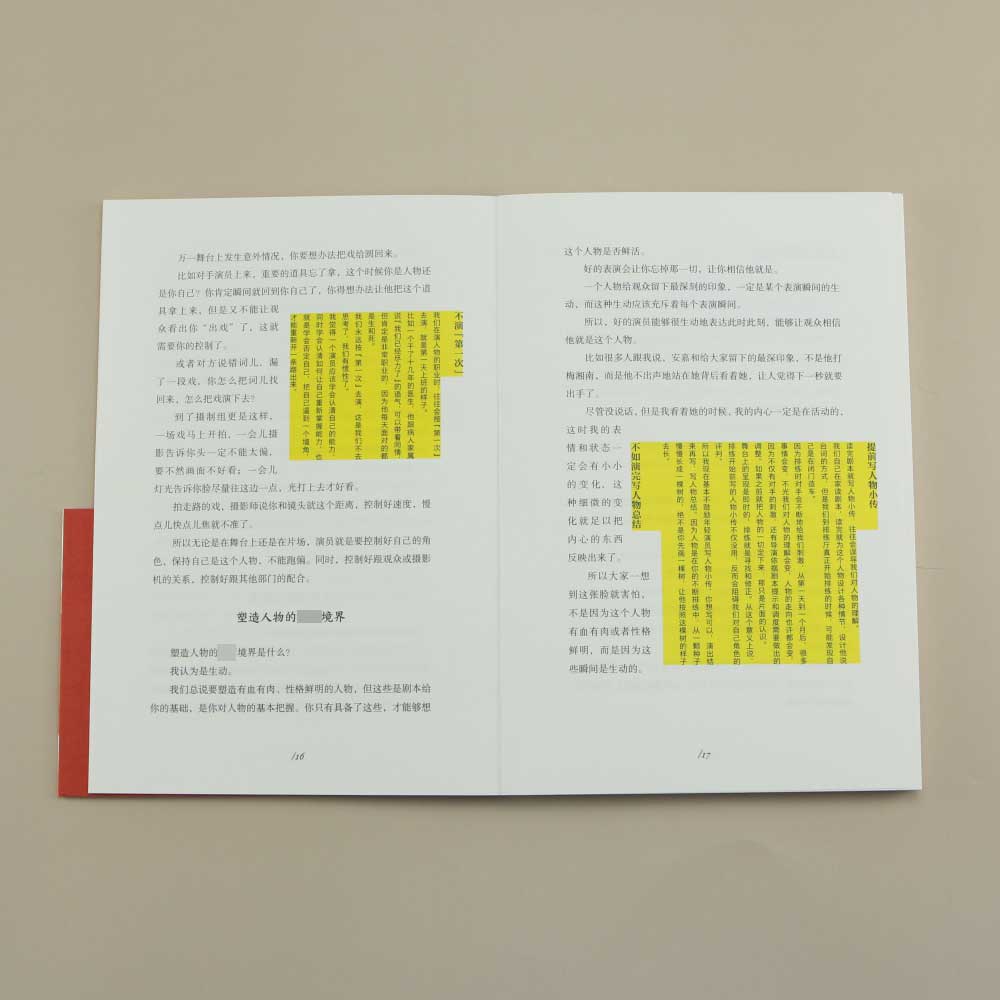 万一舞台上发生意外情况，你要想办法把戏给圆回来。
比如对手演员上来，重要的道具忘了拿，这个时候你是人物还
是你自己？你肯定瞬间就回到你自己了，你得想办法让他把这个道
具拿上来，但是又不能让观
众看出你“出戏”了，这就
需要你的控制了。
或者对方说错词儿，漏
了一段戏，你怎么把词儿找
回来，怎么把戏演下去？
到了摄制组更是这样，
一场戏马上开拍，一会儿摄
影告诉你头一定不能太偏，
要不然画面不好看；一会儿
灯光告诉你脸尽量往这边一点，光打上去才好看。
拍走路的戏，摄影师说你和镜头就这个距离，控制好速度，慢
点儿快点儿焦就不准了。
所以无论是在舞台上还是在片场，演员就是要控制好自己的角
色，保持自己是这个人物，不能跑偏。同时，控制好跟观众或摄影
机的关系，控制好跟其他部门的配合。
不演“第一次”
我们在演人物的职业时，往往会照“第一次”
去演，就是第一天上班的样子。
比如一个干了十几年的医生，他跟病人家属
说“我们已经尽力了”的语气，可以带着同情，
但肯定是非常职业的，因为他每天面对的都
是生和死。
我们永远按“第一次”去演，这是我们不去
思考了，我们有惯性了。
我觉得一个演员应该学会认清自己的能力，
同时学会认清如何让自己重新掌握能力，也
就是学会否定自己，把自己逼到一个墙角，
才能重新开一条路出来。
塑造人物的 境界
塑造人物的 境界是什么？
我认为是生动。
我们总说要塑造有血有肉、性格鲜明的人物，但这些是剧本给
你的基础，是你对人物的基本把握。你只有具备了这些，才能够想
/16
这个人物是否鲜活。
好的表演会让你忘掉那一切，让你相信他就是。
一个人物给观众留下最深刻的印象，一定是某个表演瞬间的生
动，而这种生动应该充斥着每个表演瞬间。
所以，好的演员能够很生动地表达此时此刻，能够让观众相信
他就是这个人物。
比如很多人跟我说，安嘉和给大家留下的最深印象，不是他打
梅湘南，而是他不出声地站在她背后看着她，让人觉得下一秒就要
出手了。
尽管没说话，但是我看着她的时候，我的内心一定是在活动的，
这时我的表
情和状态一
定会有小小
的变化，这
种细微的变
化就足以把
内心的东西
反映出来了。
所以大家一想
到这张脸就害怕，
不是因为这个人物
有血有肉或者性格
鲜明，而是因为这
些瞬间是生动的。
提前写人物小传
不如演完写人物总结
读完剧本就写人物小传，往往会误导我们对人物的理解。
我们自己在家读剧本，读完就为这个人物设计各种情节，设计他说
台词的方式，但是我们到排练厅真正开始排练的时候，可能发现自
己是在闭门造车。
因为排练时对手会不断地给我们刺激，从第一天到一个月后，很多
事情会变，不光我们对人物的理解会变，人物的走向也许都会变，
因为不仅有对手的刺激，还有导演依据剧本提示和调度需要做出的
调整，如果之前就把人物的一切定下来，那只是片面的认识。
舞台上的呈现是即时的，排练就是寻找和修正，从这个意义上说，
排练开始前写的人物小传不仅没用，反而会阻碍我们对自己角色的
评判。
所以我现在基本不鼓励年轻演员写人物小传，你想写可以，演出结
来再写，写人物总结。因为人物是在你的不断排练中，从一颗种子
慢慢长成一棵树的，绝不是你先画一棵树，让他按照这棵树的样子
去长。
/17